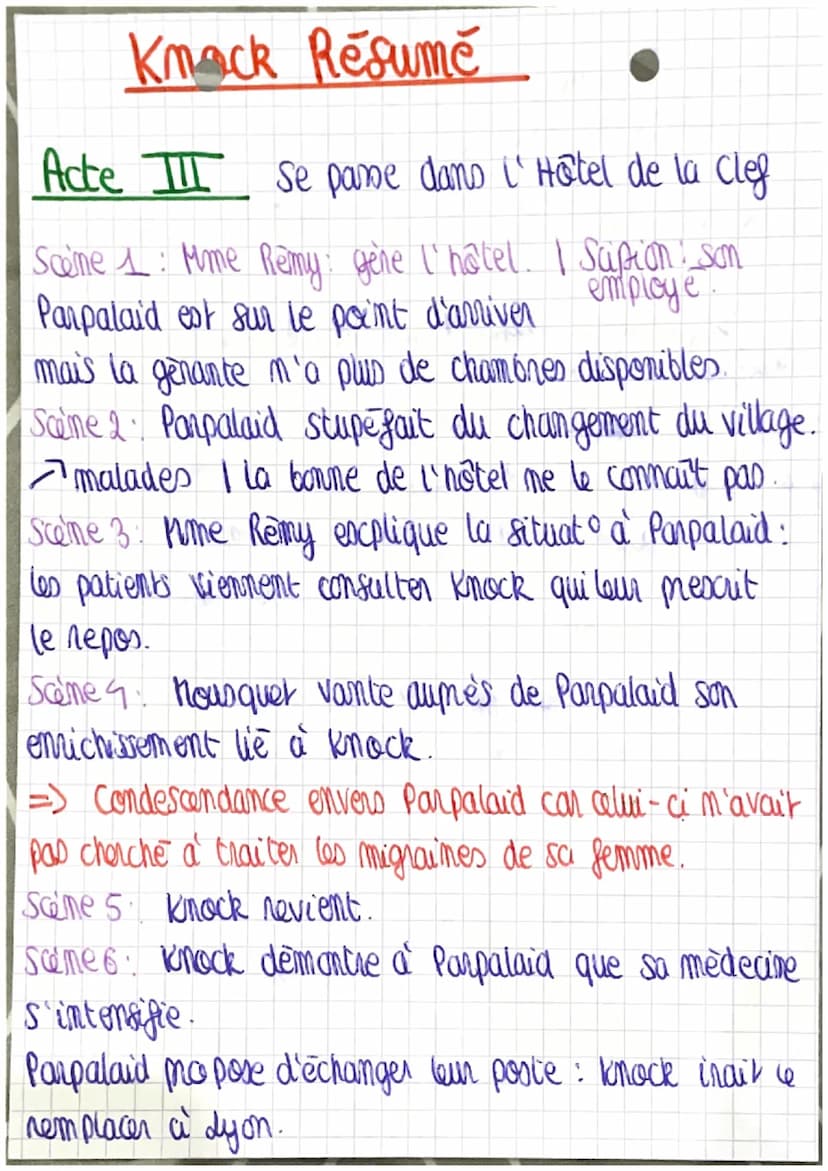 Knock Résumé
Acte III Se passe dans l'Hôtel de la Clef
Scène 1 : Mme Rémy : gère l'hôtel. | Scipion : son
employé.
Parpalaid est sur le point d'arriver
mais la gérante n'a plus de chambres disponibles.
Scène 2 : Parpalaid stupéfait du changement du village.
↗ malades | la bonne de l'hôtel ne le connaît pas.
Scène 3 : Mme Rémy explique la situat° à Parpalaid :
les patients viennent consulter Knock qui leur prescrit
le repos.
Scène 4 : Mousquet vante auprès de Parpalaid son
enrichissement lié à Knock.
=> Condescendance envers Parpalaid car celui-ci n'avait
pas cherché à traiter les migraines de sa femme.
Scène 5 : Knock revient.
Scène 6 : Knock démontre à Parpalaid que sa médecine
s'intensifie.
Parpalaid propose d'échanger leur poste : Knock irait le
remplacer à Lyon.